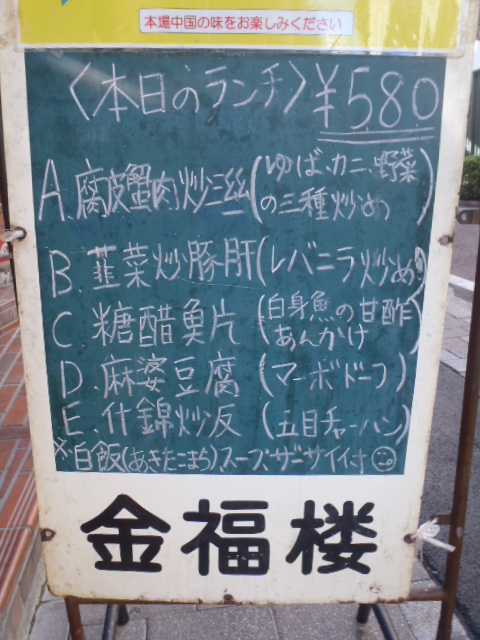 本場中国の味をお楽しみください
〈本日のランチ〉¥580
A.腐皮蟹肉炒三絲(ゆば、カニ、野菜
の三種炒め)
B.韮菜炒豚肝(レバニラ炒め)
C.糖醋魚片(白身魚の甘酢
あんかけ)
D.麻婆豆腐(マーボドーフ)
E.什錦炒反(五目チャーハン)
※白飯(あきたこまち)スープ、ザーサイ付
金福楼